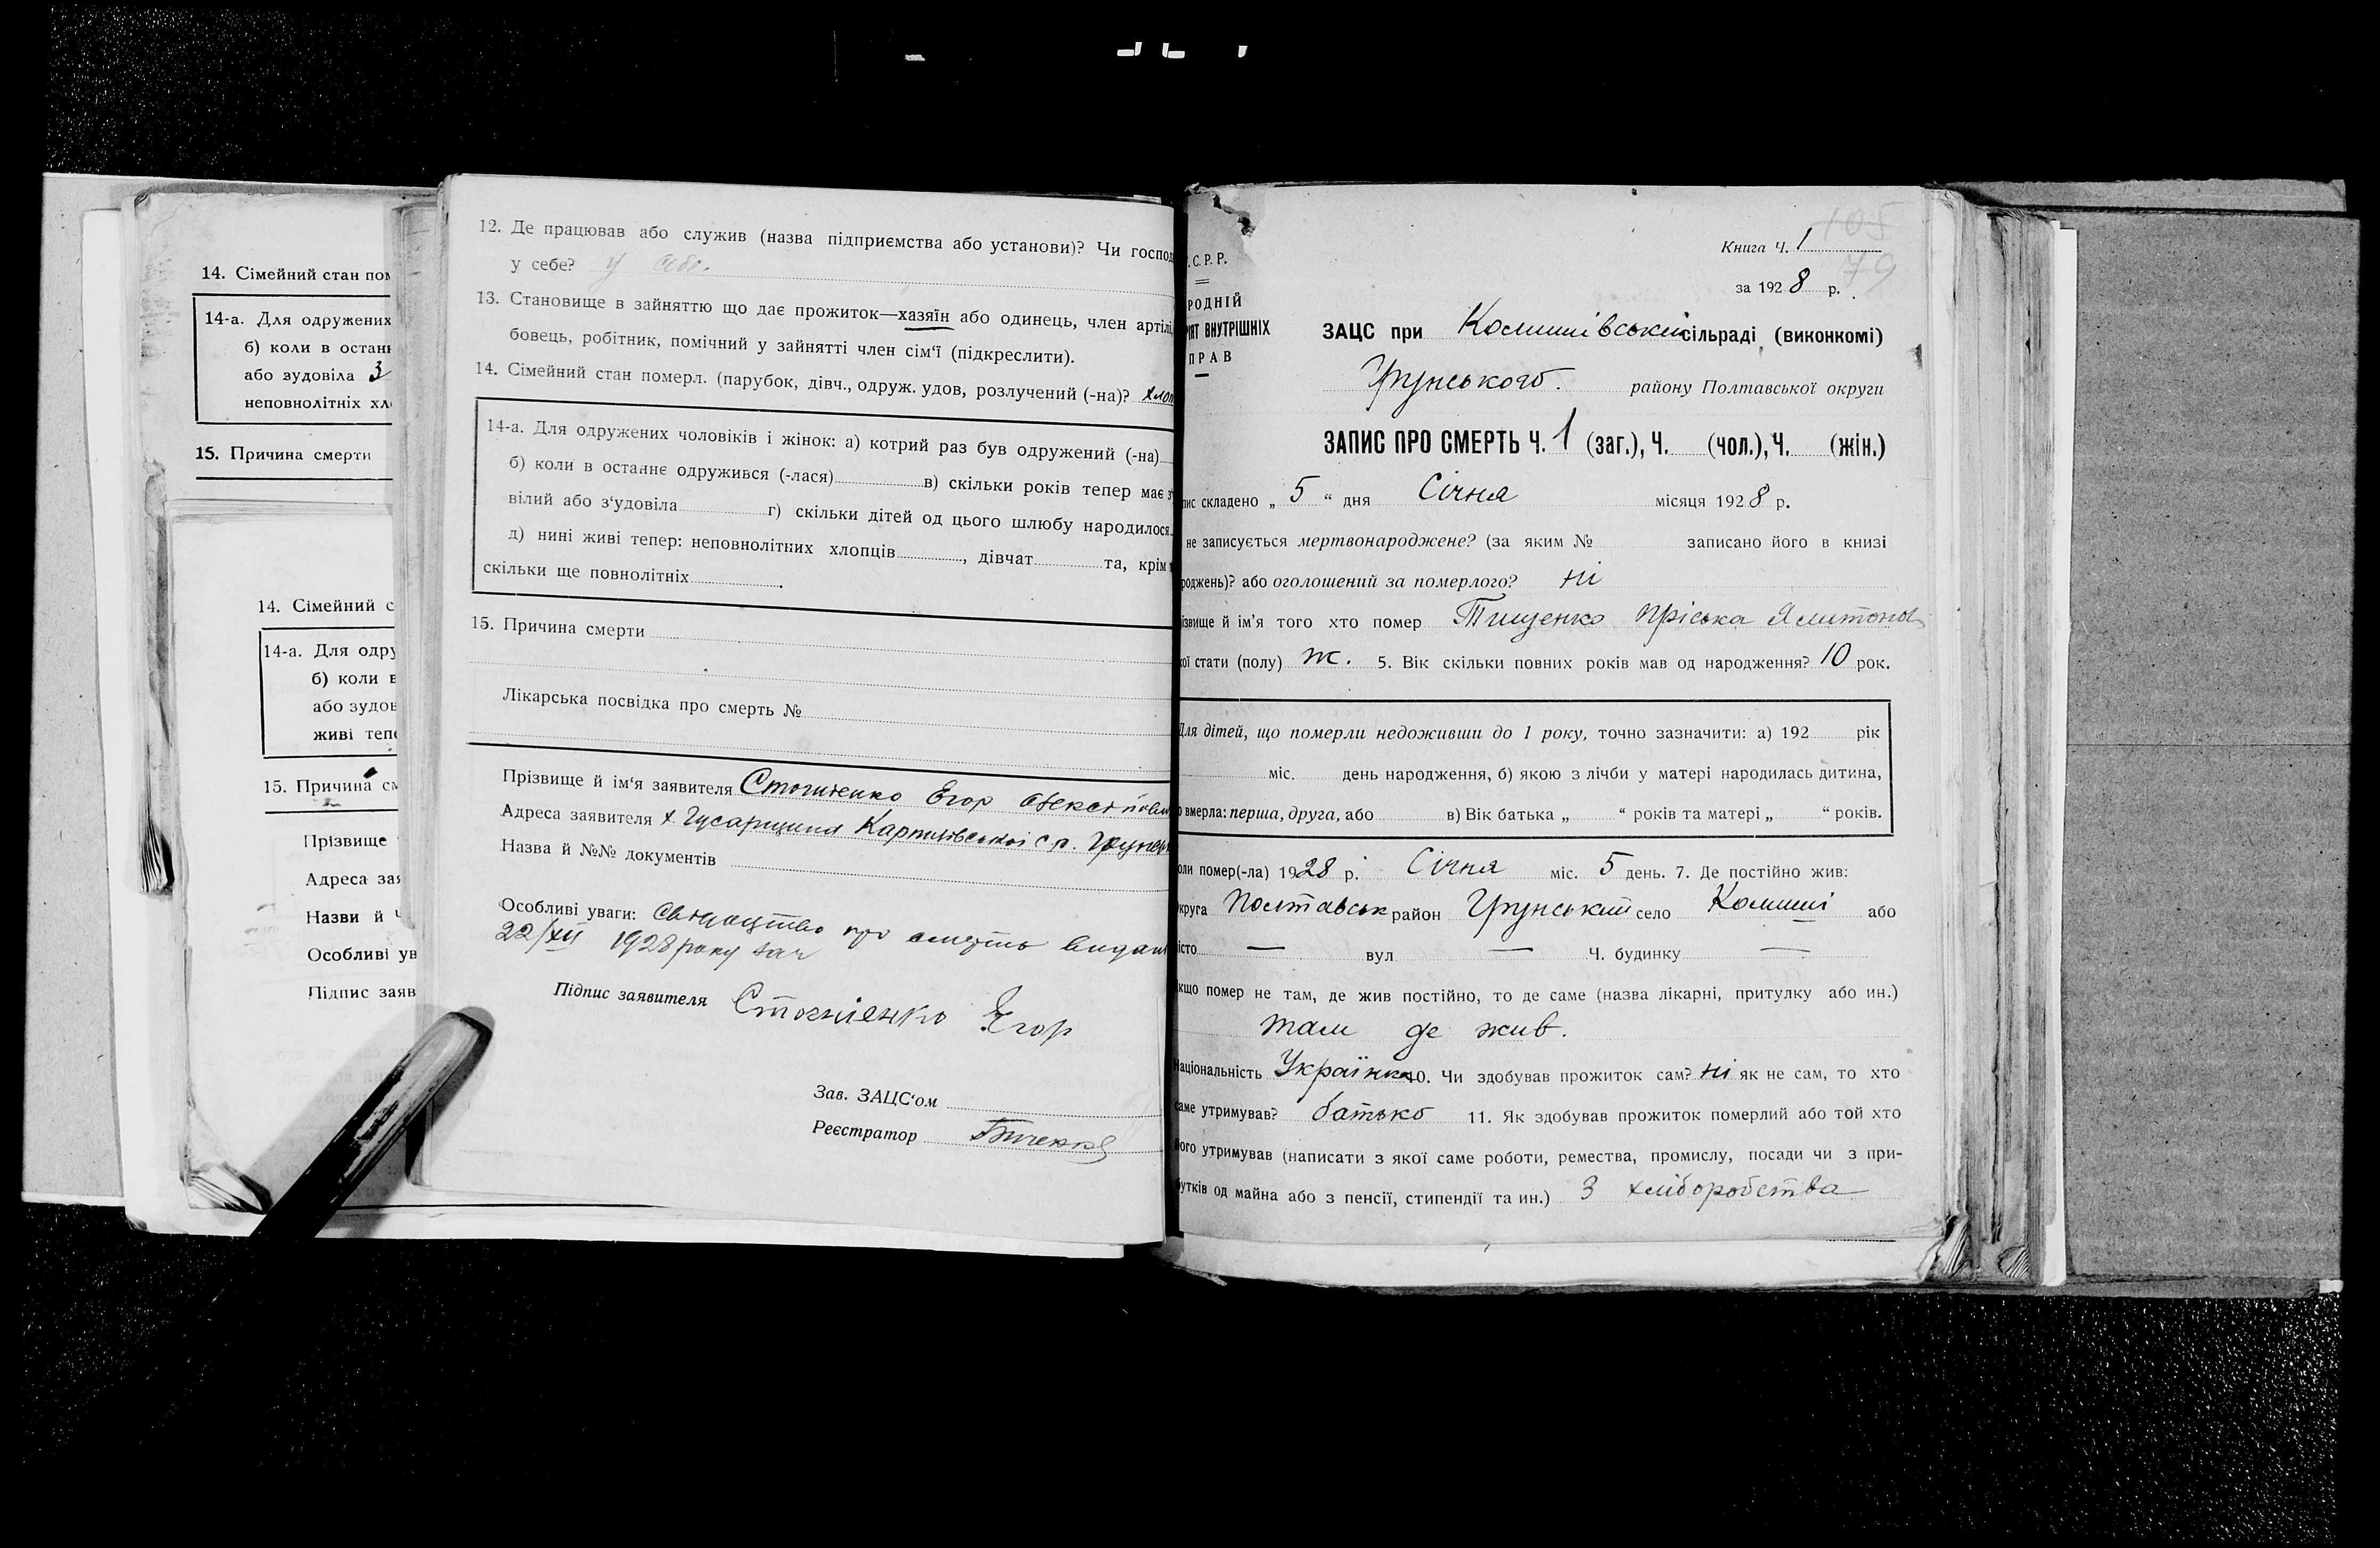 14. Сімейний стан пом
14-а. Для одружених
б) коли в останн
або зудовіла 3
неповнолітніх хл
15. Причина смерти
14. Сімейний с
14-а. Для одру
б) коли в
або зудов
живі теп
15. Причина см
Прізвище
Адреса зая
Назви й
Особливі ув
Підпис заяв
12. Де працював або служив (назва підприємства або установи)? Чи господ
у себе? у себе.
13. Становище в зайняттю що дає прожиток—хазяїн або одинець, член артілі,
бовець, робітник, помічний у зайнятті член сім'ї (підкреслити).
14. Сімейний стан померл. (парубок, дівч., одруж. удов, розлучений (-на)? хлоп
14-а. Для одружених чоловіків і жінок: а) котрий раз був одружений (-на)
б) коли в останнє одружився (-лася) в) скільки років тепер має з'
вілий або з'удовіла г) скільки дітей од цього шлюбу народилося
д) нині живі тепер: неповнолітних хлопців , дівчат та, крім т
скільки ще повнолітніх .
15. Причина смерти
Лікарська посвідка про смерть №
Прізвище й ім'я заявителя Стогнієнко Єгор
Адреса заявителя х. Гусарщина С р. Грунсь
Назва й №№ документів
Особливі уваги: про смерть видан
22/XII 1928 року за ч
Підпис заявителя Стогнієнко Єгор
Зав. ЗАЦС'ом
Реєстратор
105
Книга Ч. 1
79
за 1928 р.
.С.Р.Р.
РОДНІЙ
РІЯТ ВНУТРІШНІХ
ПРАВ
ЗАЦС при Комишівській сільраді (виконкомі)
Грунського. району Полтавської округи
ЗАПИС ПРО СМЕРТЬ Ч. 1 (заг.), Ч. (чол.), Ч. (жін.)
пис складено „ 5 “ дня Січня місяця 1928 р.
не записується мертвонароджене? (за яким № записано його в книзі
роджень)? або оголошений за померлого? ні
ізвище й ім'я того хто помер Тищенко Пріська
кої стати (полу) ж. 5. Вік скільки повних років мав од народження? 10 рок.
Для дітей, що померли недоживши до 1 року, точно зазначити: а) 192 рік
міс. день народження, б) якою з лічби у матері народилась дитина,
о вмерла: перша, друга, або в) Вік батька „ “ років та матері „ “ років.
оли помер(-ла) 1928 р. Січня міс. 5 день. 7. Де постійно жив:
круга Полтавськ район Грунський село Комиші або
істо — вул — Ч. будинку —
кщо помер не там, де жив постійно, то де саме (назва лікарні, притулку або ин.)
там де жив.
Національність Українка 10. Чи здобував прожиток сам? ні як не сам, то хто
саме утримував? батько 11. Як здобував прожиток померлий або той хто
його утримував (написати з якої саме роботи, ремества, промислу, посади чи з при-
бутків од майна або з пенсії, стипендії та ин.) З хліборобства